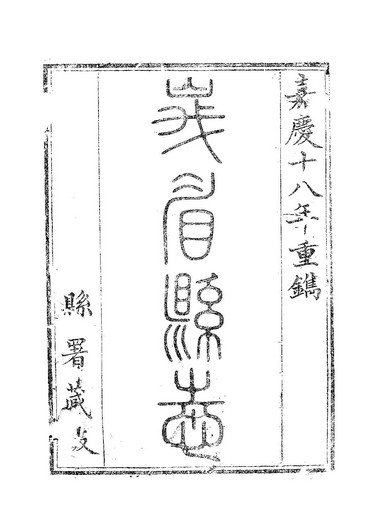 嘉慶十八年重鐫
峩眉縣志
縣署藏板